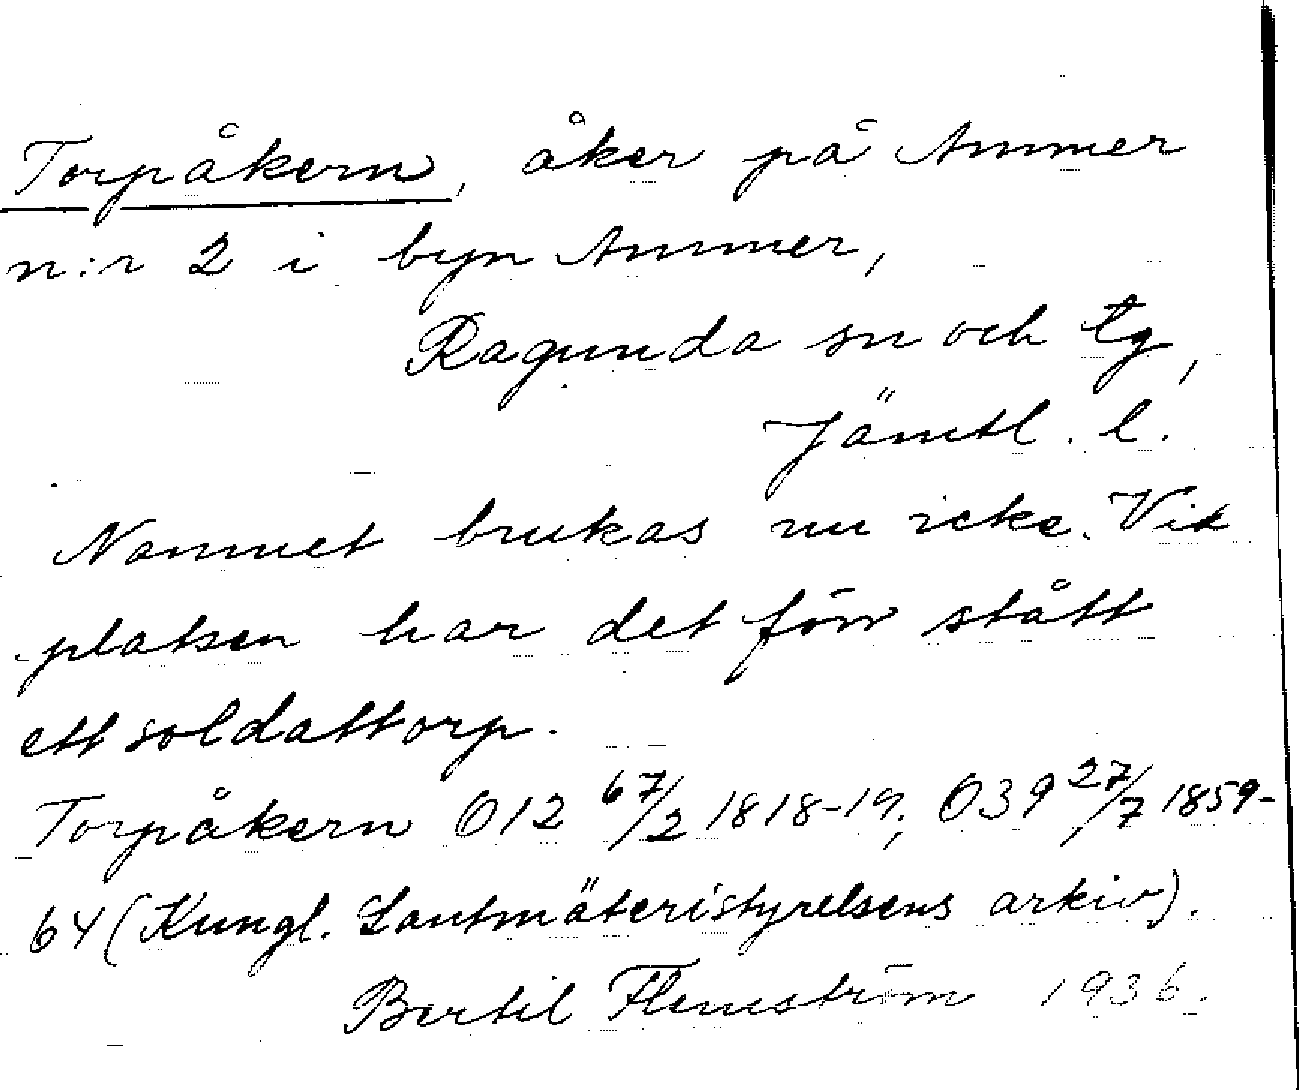 Torpåkern, åker på Ammer
n:r 2 i byn Ammer,
Ragunda sn och tg,
Jämtl. l.
Namnet brukas nu icke. Vid
platsen har det förr stått
ett soldattorp.
Torpåkern O12 67/2 1818-19; O39 27/7 1859-
64 (Kungl. Lantmäteristyrelsens arkiv).
Bertil Flemström 1936.